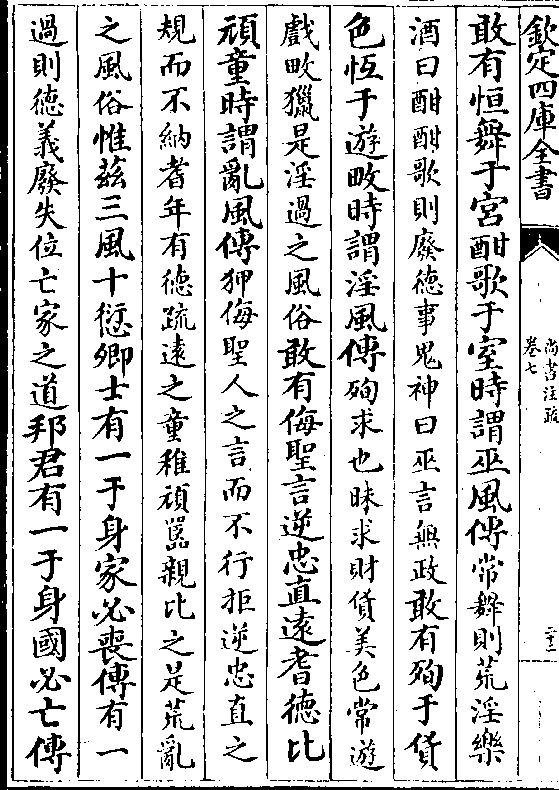 欽定四庫全書
尚書注疏
卷七
二十二
敢有恒舞于宮酣歌于室時謂巫風傳常舞則荒淫樂
酒曰酣酣歌則廢德事鬼神曰巫言無政敢有殉于貨
色恆于遊畋時謂淫風傳殉求也昧求財貨美色常遊
戲畋獵是淫過之風俗敢有侮聖言逆忠直遠耆德比
頑童時謂亂風傳狎侮聖人之言而不行拒逆忠直之
規而不納耆年有德疏遠之童稚頑嚚親比之是荒亂
之風俗惟茲三風十愆卿士有一于身家必喪傳有一
過則德義廢失位亡家之道邦君有一于身國必亡傳